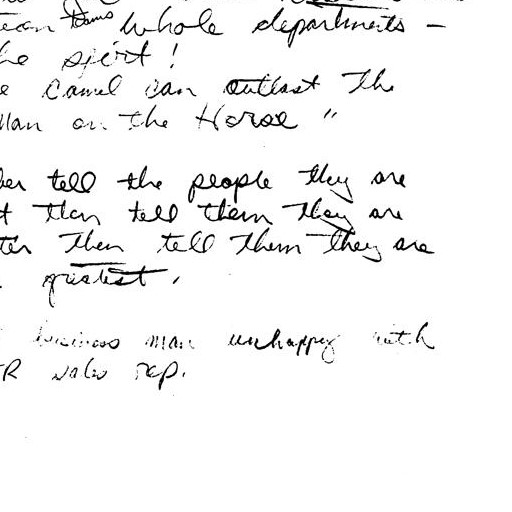 whole departments -
he spirit !
e Camel can outlast the
Man on the Horse "
ber tell the people they are
t then tell them they are
ter then tell them they are
greatest .
business man unhappy with
R sales rep.